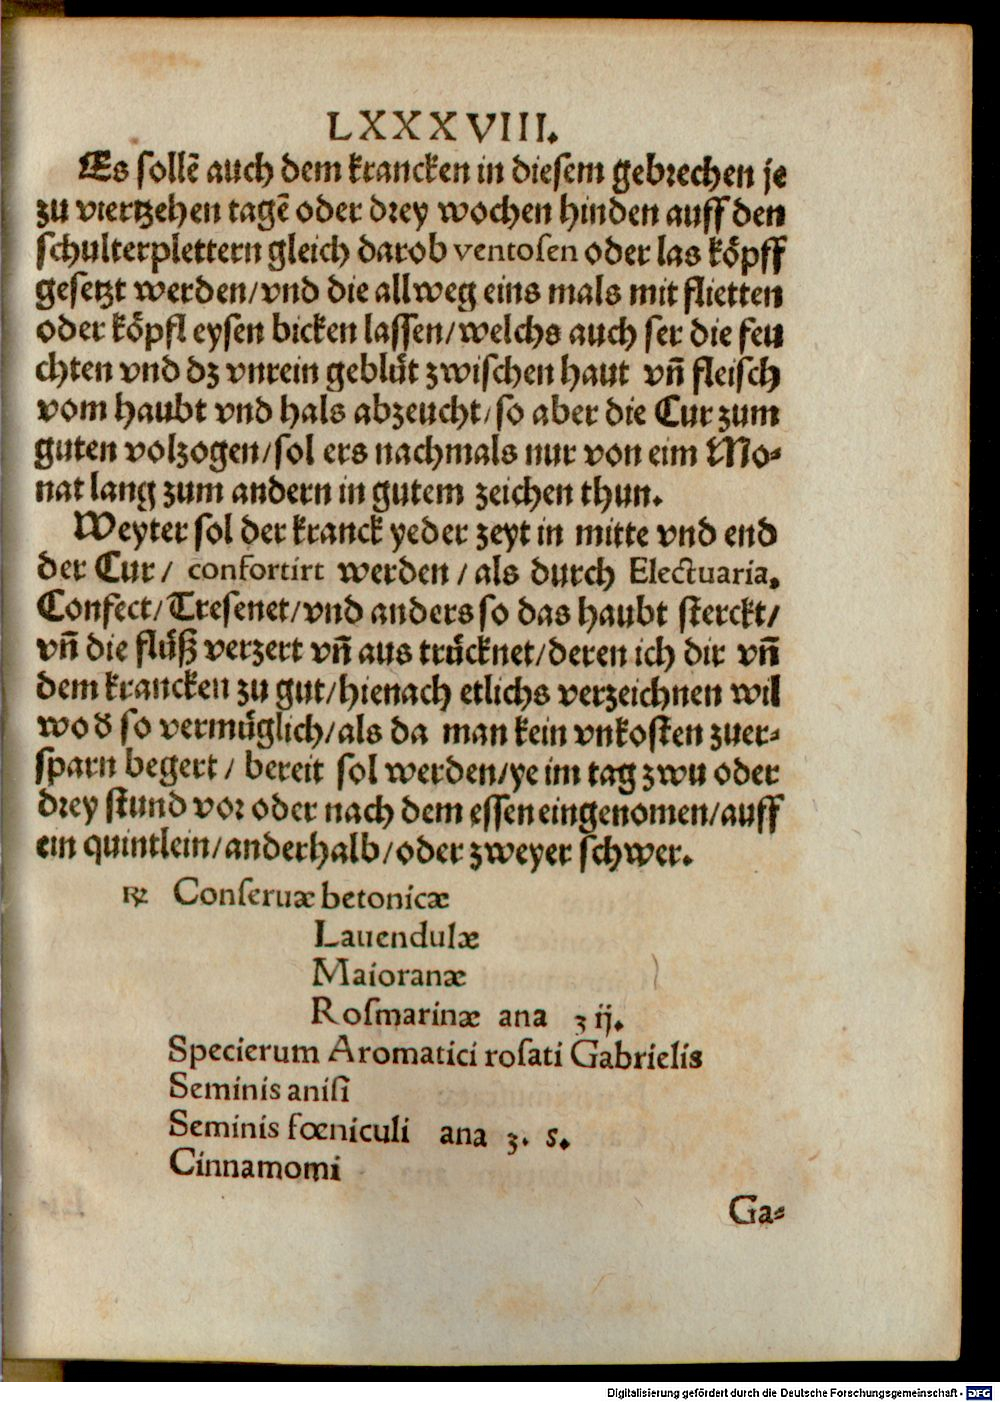 LXXXVIII.
Es sollē auch dem krancken in diesem gebrechen je
zu viertzehen tagē oder drey wochen hinden auff den
schulterplettern gleich darob ventosen oder las köpff
gesetzt werden/vnd die allweg eins mals mit flietten
oder köpfl eysen bicken lassen/welchs auch ser die feu
chten vnd dz vnrein geblůt zwischen haut vñ fleisch
vom haubt vnd hals abzeucht/so aber die Cur zum
guten volzogen/sol ers nachmals nur von eim Mo⸗
nat lang zum andern in gutem zeichen thun.
Weyter sol der kranck yeder zeyt in mitte vnd end
der Cur/ confortirt werden/als durch Electuaria.
Confect/Tresenet/vnd anders so das haubt sterckt/
vñ die flüß verzert vñ aus trücknet/deren ich dir vñ
dem krancken zu gut/hienach etlichs verzeichnen wil
wo đ so vermüglich/als da man kein vnkosten zuer⸗
sparn begert/ bereit sol werden/ye im tag zwu oder
drey stund vor oder nach dem essen eingenomen/auff
ein quintlein/anderhalb/oder zweyer schwer.
℞ Conseruæ betonicæ
Lauendulæ
Maioranæ
Rosmarinæ ana ʒ ij.
Specierum Aromatici rosati Gabrielis
Seminis anisi
Seminis fœniculi ana ʒ. s.
Cinnamomi
Ga⸗
Digitalisierung gefördert durch die Deutsche Forschungsgemeinschaft - DFG